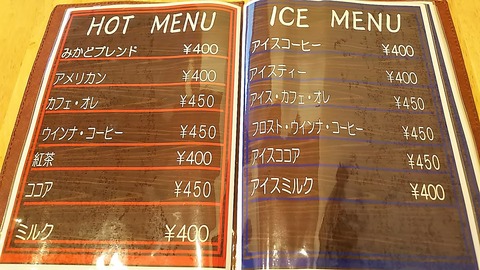 HOT MENU
みかどブレンド ¥400
アメリカン ¥400
カフェ・オレ ¥450
ウインナ・コーヒー ¥450
紅茶 ¥400
ココア ¥450
ミルク ¥400
ICE MENU
アイスコーヒー ¥400
アイスティー ¥400
アイス・カフェ・オレ ¥450
フロスト・ウインナ・コーヒー ¥450
アイスココア ¥450
アイスミルク ¥400